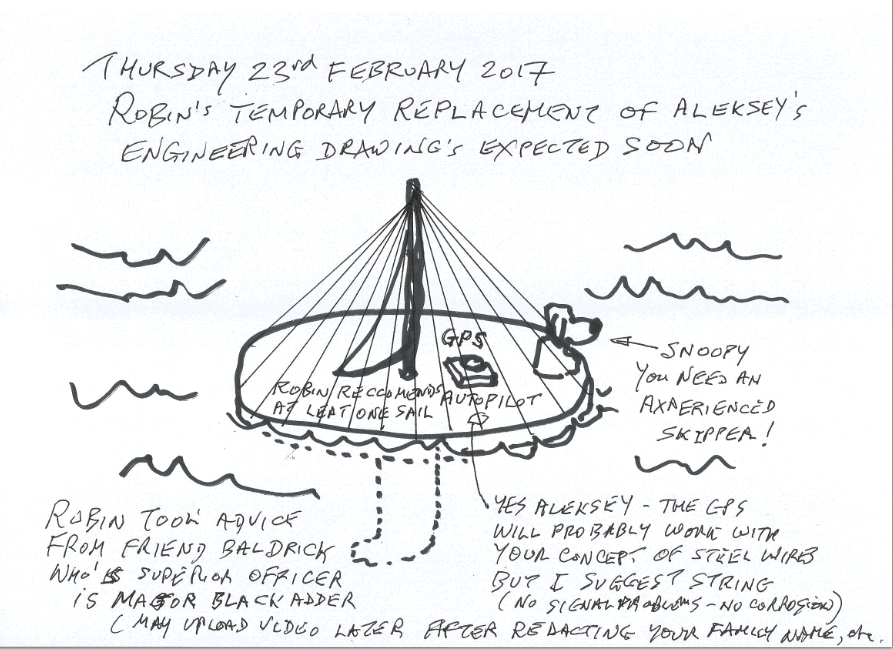 THURSDAY 23rd FEBRUARY 2017
ROBIN'S TEMPORARY REPLACEMENT OF ALEKSEY'S
ENGINEERING DRAWING'S EXPECTED SOON
GPS
ROBIN RECCOMENDS
AT LEAT ONE SAIL
AUTOPILOT
SNOOPY
YOU NEED AN
AXPERIENCED
SKIPPER!
ROBIN TOOK ADVICE
FROM FRIEND BALDRICK
WHO'S SUPERIOR OFFICER
IS MAJOR BLACKADDER
YES ALEKSEY - THE GPS
WILL PROBABLY WORK WITH
YOUR CONCEPT OF STEEL WIRES
BUT I SUGGEST STRING
(NO SIGNAL PROBLEMS - NO CORROSION)
(MAY UPLOAD VIDEO LATER AFTER REDACTING YOUR FAMILY NAME, etc.